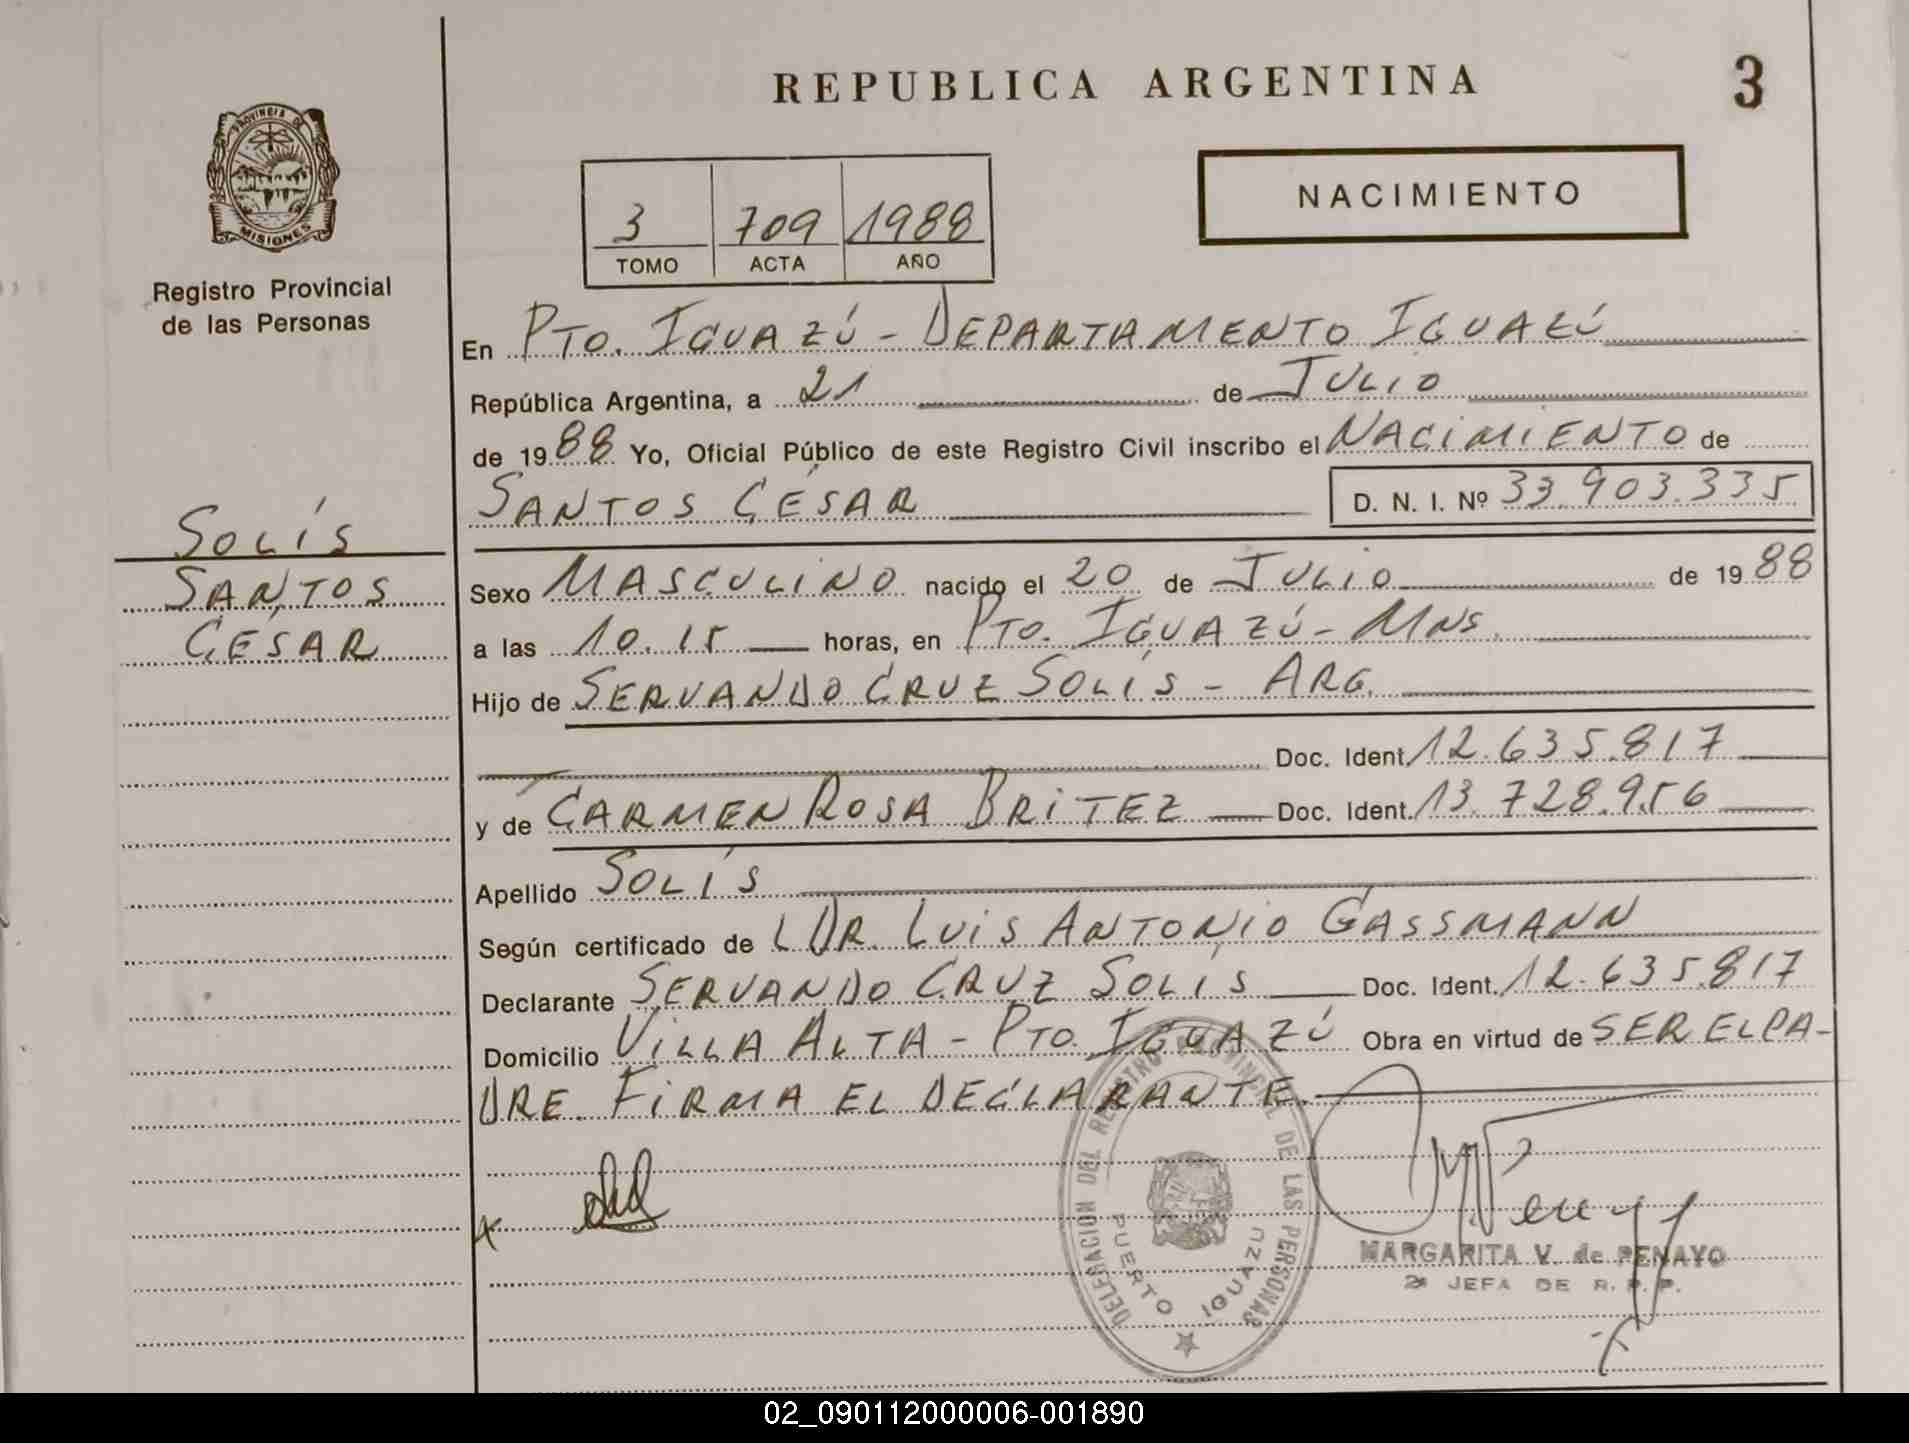 REPUBLICA ARGENTINA
3
PROVINCIA DE
MISIONES
Registro Provincial
de las Personas
NACIMIENTO
3 709 1988
TOMO ACTA AÑO
En PTO. IGUAZÚ - DEPARTAMENTO IGUAZÚ
República Argentina, a 21 de JULIO
de 1988 Yo, Oficial Público de este Registro Civil inscribo el NACIMIENTO de
SANTOS CÉSAR D. N. I. Nº 33.903.335
SOLÍS
SANTOS
CÉSAR
Sexo MASCULINO nacido el 20 de JULIO de 1988
a las 10.15 horas, en PTO. IGUAZÚ - MNS.
Hijo de SERVANDO CRUZ SOLÍS - ARG.
Doc. Ident. 12.635.817
y de CARMEN ROSA BRITEZ Doc. Ident. 13.728.956
Apellido SOLÍS
Según certificado de DR. LUIS ANTONIO GASSMANN
Declarante SERVANDO CRUZ SOLÍS Doc. Ident. 12.635.817
Domicilio VILLA ALTA - PTO. IGUAZÚ Obra en virtud de SER EL PA-
DRE. FIRMA EL DECLARANTE.
DELEGACION DEL REGISTRO PROVINCIAL DE LAS PERSONAS
PUERTO IGUAZU
MARGARITA V. de PENAYO
2ª JEFA DE R. P. P.
02_090112000006-001890